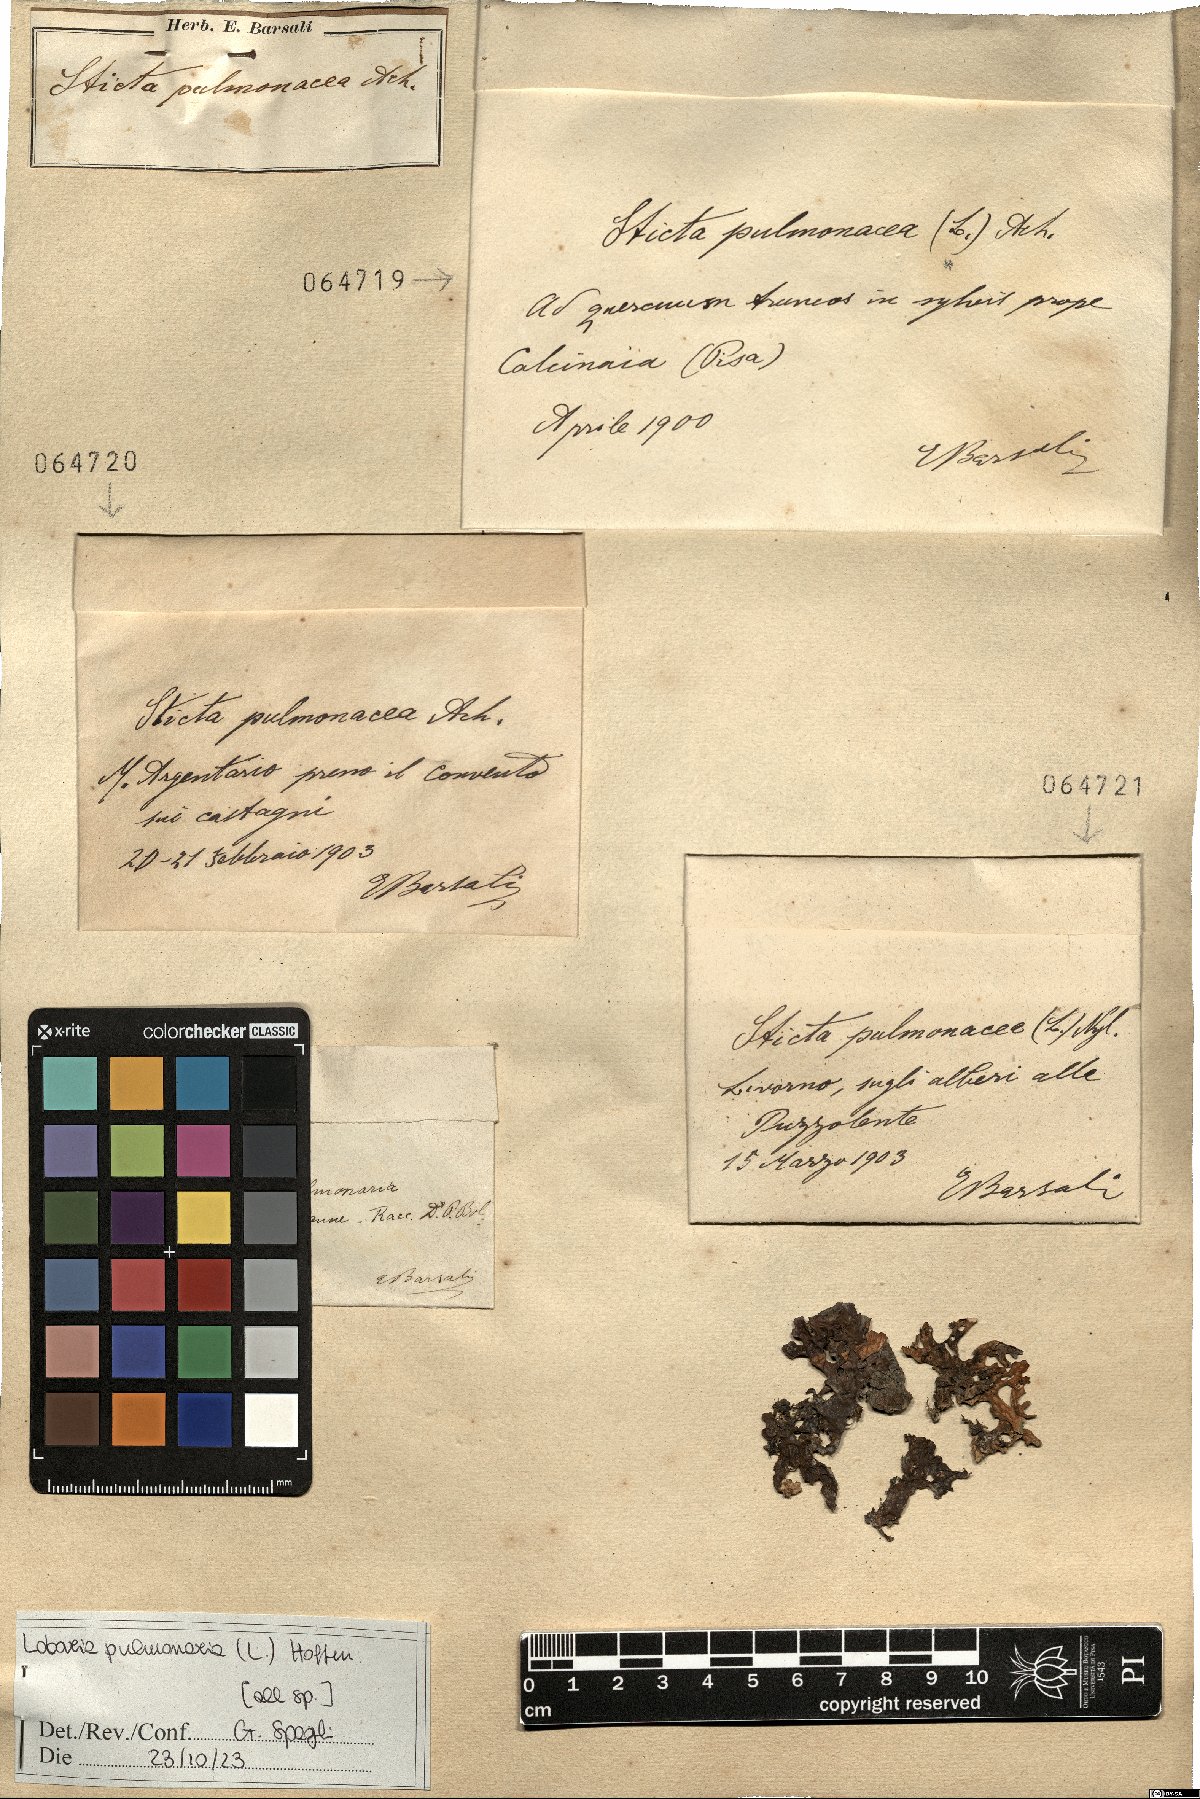 Herb. E. Barsali
Sticta pulmonacea Ach.
Sticta pulmonacea (L.) Ach.
064719
Ad quercuum truncos in sylvis prope
Calcinaia (Pisa)
Aprile 1900
EBarsali
064720
Sticta pulmonacea Ach.
M. Argentario presso il Convento
sui castagni
20-21 Febbraio 1903
EBarsali
064721
Sticta pulmonacea (L.) Nyl.
Livorno, sugli alberi alle
Puzzolente
15 Marzo 1903
EBarsali
x-rite colorchecker CLASSIC
mm
lmonaria
Racc. D. P.
EBarsali
Lobaria pulmonaria (L.) Hoffm.
[all sp.]
Det./Rev./Conf. G. Spagli
Die 23/10/23
0 1 2 3 4 5 6 7 8 9 10
cm
copyright reserved
ORTO E MUSEO BOTANICO
UNIVERSITÀ DI PISA
1543
PI